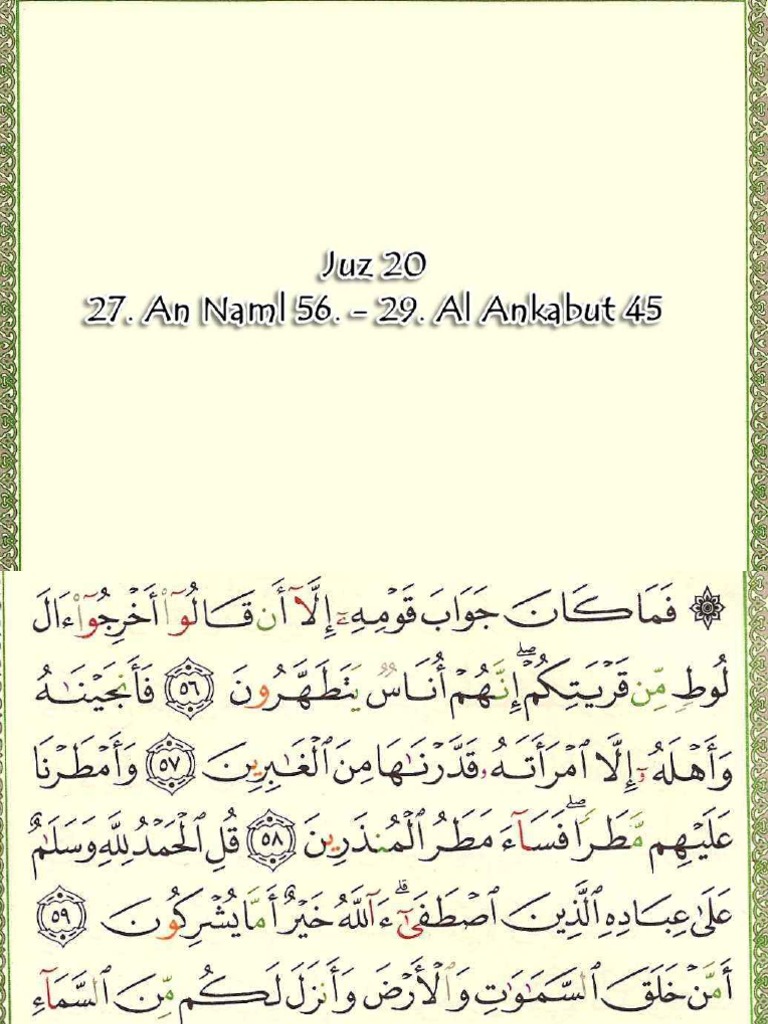 Juz 20
27. An Naml 56. - 29. Al Ankabut 45
۞ فَمَا كَانَ جَوَابَ قَوْمِهِۦٓ إِلَّآ أَن قَالُوٓا۟ أَخْرِجُوٓا۟ ءَالَ
لُوطٍ مِّن قَرْيَتِكُمْ ۖ إِنَّهُمْ أُنَاسٌ يَتَطَهَّرُونَ ٥٦ فَأَنجَيْنَـٰهُ
وَأَهْلَهُۥٓ إِلَّا ٱمْرَأَتَهُۥ قَدَّرْنَـٰهَا مِنَ ٱلْغَـٰبِرِينَ ٥٧ وَأَمْطَرْنَا
عَلَيْهِم مَّطَرًا ۖ فَسَآءَ مَطَرُ ٱلْمُنذَرِينَ ٥٨ قُلِ ٱلْحَمْدُ لِلَّهِ وَسَلَـٰمٌ
عَلَىٰ عِبَادِهِ ٱلَّذِينَ ٱصْطَفَىٰٓ ۗ ءَآللَّهُ خَيْرٌ أَمَّا يُشْرِكُونَ ٥٩
أَمَّنْ خَلَقَ ٱلسَّمَـٰوَٰتِ وَٱلْأَرْضَ وَأَنزَلَ لَكُم مِّنَ ٱلسَّمَآءِ